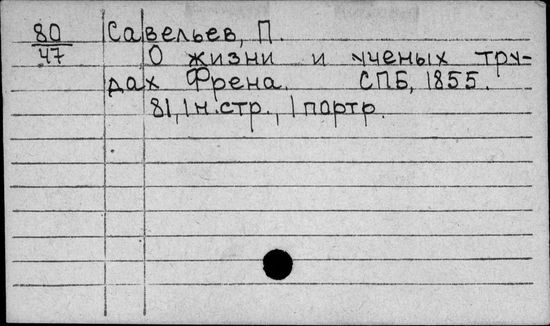 80 Савельев, П.
47 О жизни и ученых тру-
дах Френа. СПБ, 1855.
81, 1 н. стр., 1 портр.